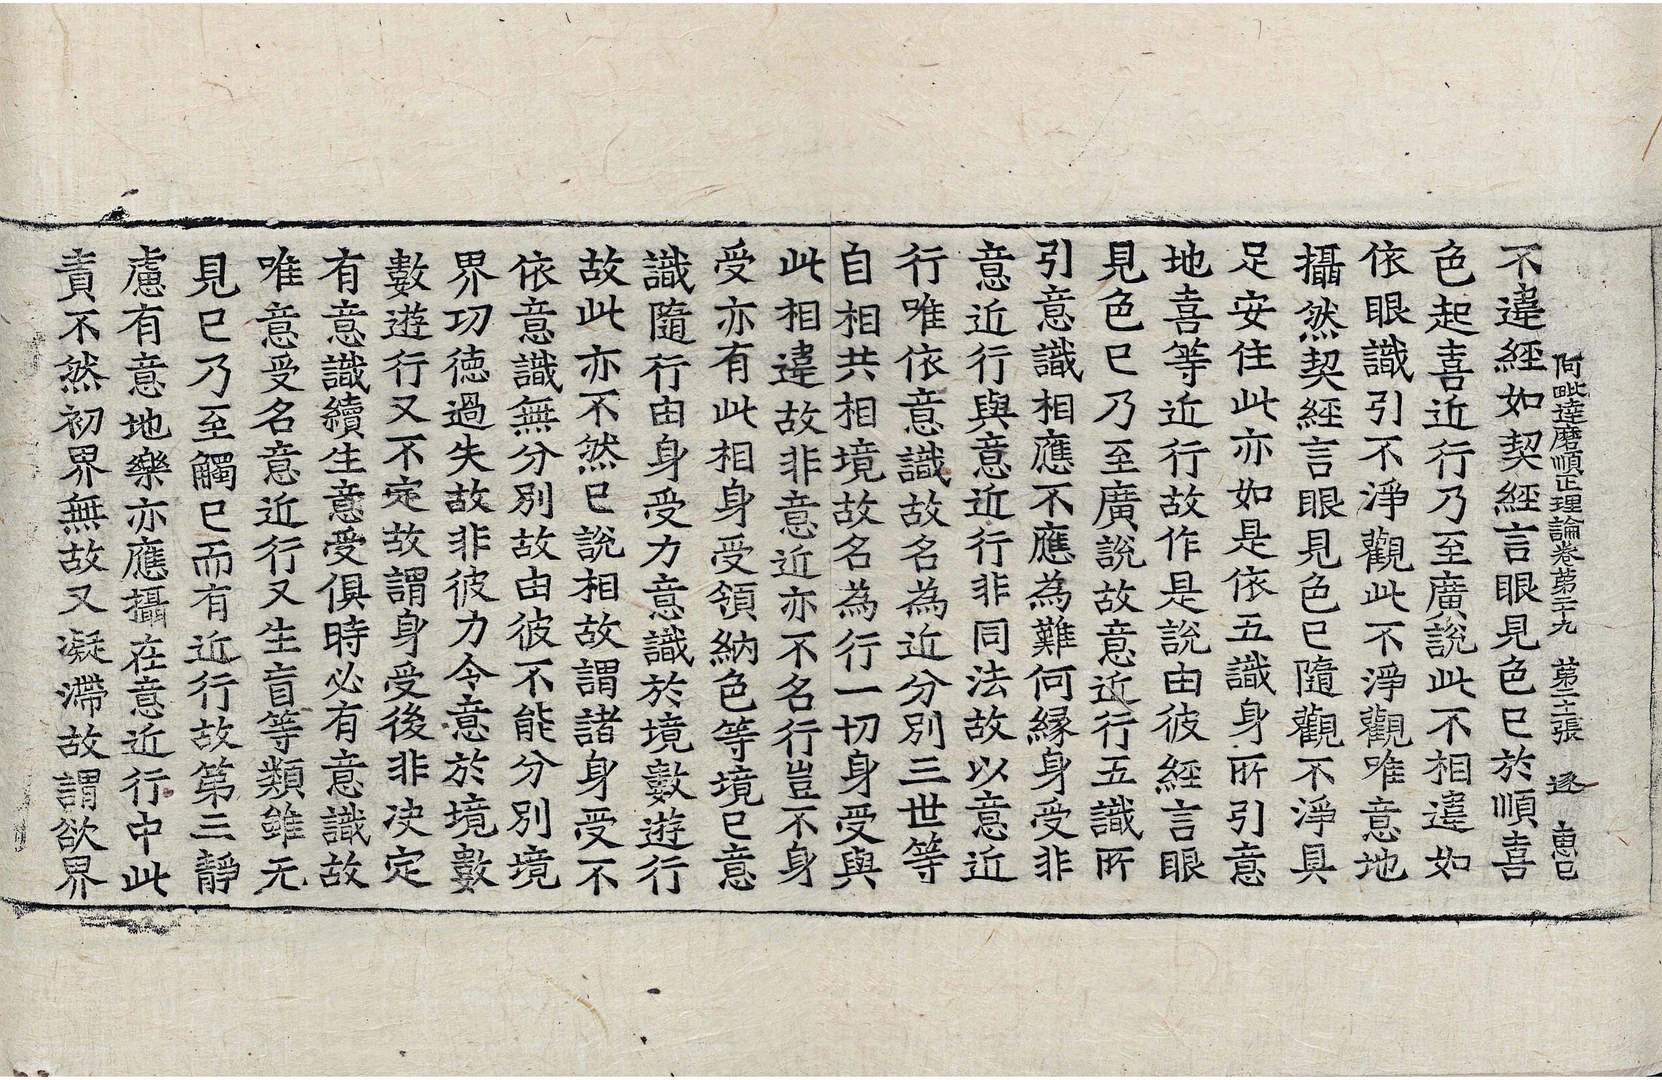 阿毗達磨順正理論卷第二十九 第二十張 逐 惠巳
不違經如契經言眼見色已於順喜
色起喜近行乃至廣說此不相違如
依眼識引不淨觀此不淨觀唯意地
攝然契經言眼見色已隨觀不淨具
足安住此亦如是依五識身所引意
地喜等近行故作是說由彼經言眼
見色已乃至廣說故意近行五識所
引意識相應不應為難何緣身受非
意近行與意近行非同法故以意近
行唯依意識故名為近分別三世等
自相共相境故名為行一切身受與
此相違故非意近亦不名行豈不身
受亦有此相身受領納色等境已意
識隨行由身受力意識於境數遊行
故此亦不然已說相故謂諸身受不
依意識無分別故由彼不能分別境
界功德過失故非彼力令意於境數
數遊行又不定故謂身受後非決定
有意識續生意受俱時必有意識故
唯意受名意近行又生盲等類雖无
見已乃至觸已而有近行故第三靜
慮有意地樂亦應攝在意近行中此
責不然初界無故又凝滯故謂欲界